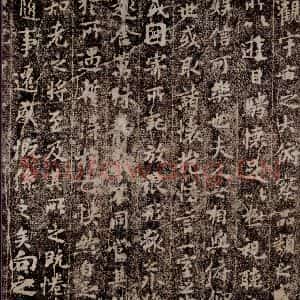 觀宇宙之大俯察品類
所以遊目騁懷足以極視聽
娛信可樂也夫人之相與俯仰
世或取諸懷抱悟言一室之
或因寄所託放浪形骸之外
趣舍萬殊靜躁不同當其
於所遇暫得於己快然自
知老之將至及其所之既惓
隨事遷感慨係之矣向之